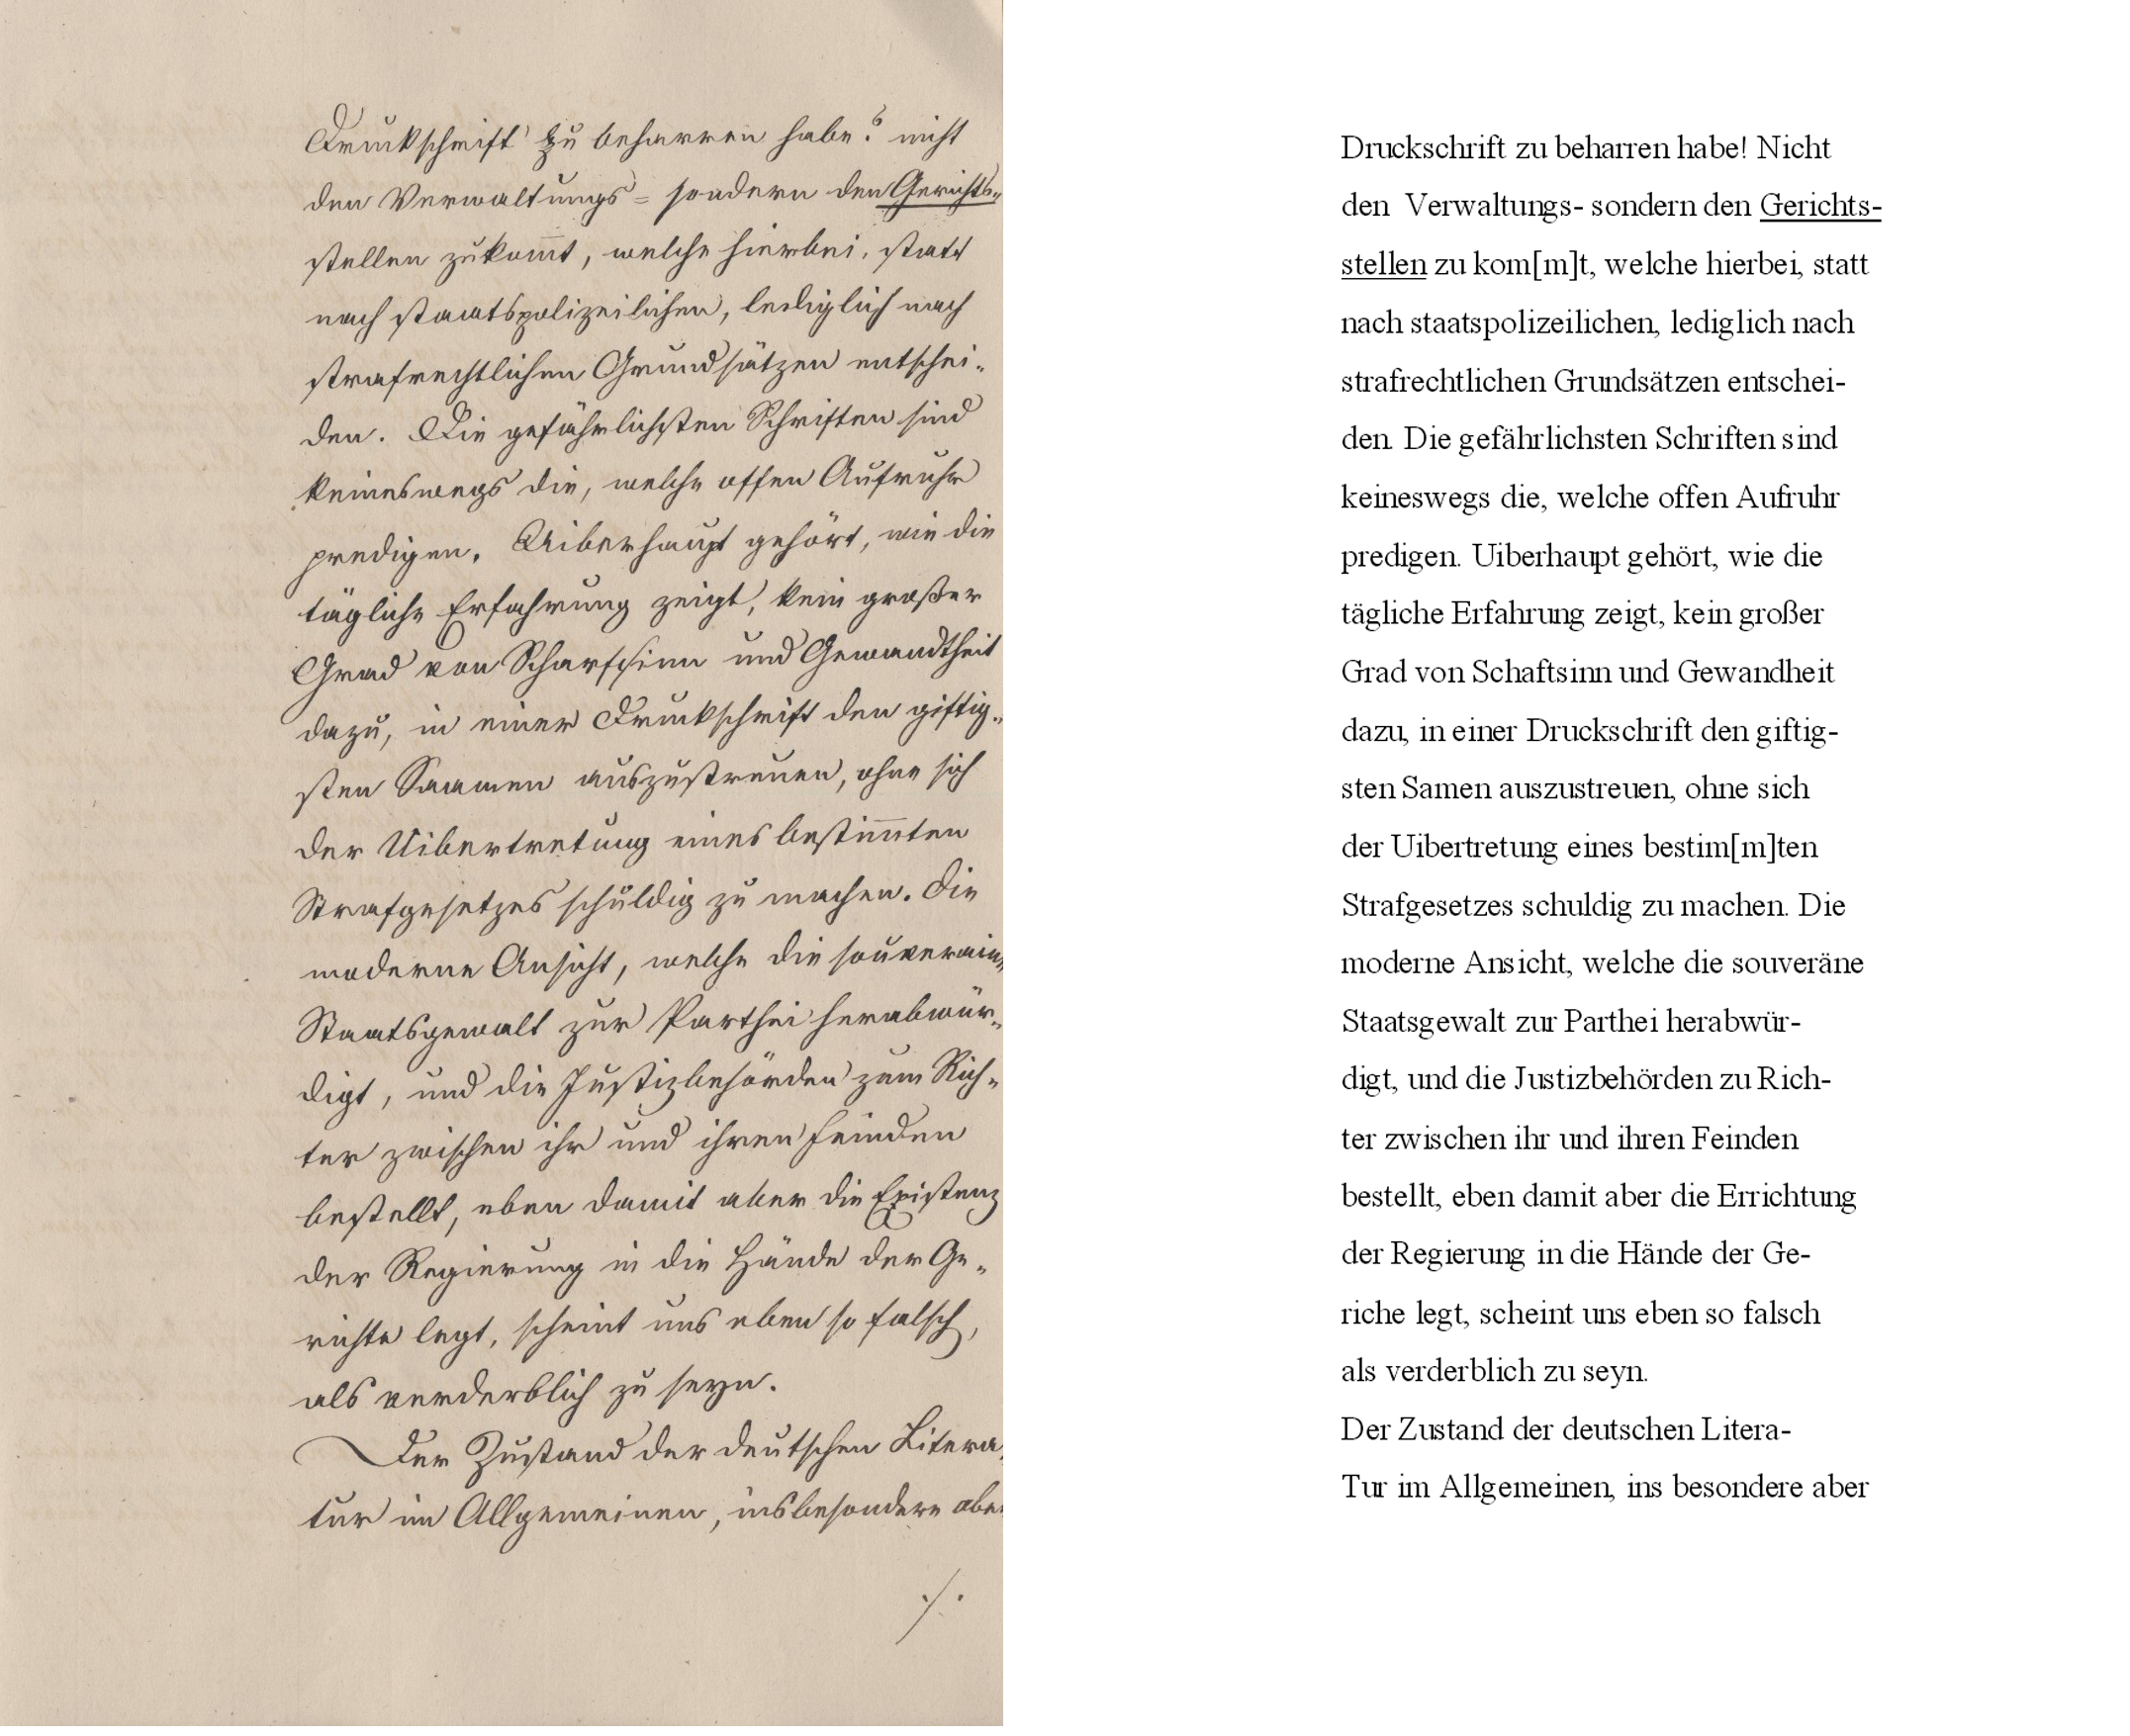 Druckschrift zu beharren habe? nicht
den Verwaltungs= sondern den Gerichts-
stellen zukom̅t, welche hierbei, statt
nach staatspolizeilichen, lediglich nach
strafrechtlichen Grundsätzen entschei-
den. Die gefährlichsten Schriften sind
keineswegs die, welche offen Aufruhr
predigen. Uiberhaupt gehört, wie die
tägliche Erfahrung zeigt, kein großer
Grad von Scharfsinn und Gewandtheit
dazu, in einer Druckschrift den giftig-
sten Saamen auszustreuen, ohne sich
der Uibertretung eines bestim̅ten
Strafgesetzes schuldig zu machen. Die
moderne Ansicht, welche die souveraine
Staatsgewalt zur Parthei herabwür-
digt, und die Justizbehörden zum Rich-
ter zwischen ihr und ihren Feinden
bestellt, eben damit aber die Existenz
der Regierung in die Hände der Ge-
richte legt, scheint uns eben so falsch,
als verderblich zu seyn.
Der Zustand der deutschen Litera-
tur im Allgemeinen, insbesondere aber
./.
Druckschrift zu beharren habe! Nicht
den Verwaltungs- sondern den Gerichts-
stellen zu kom[m]t, welche hierbei, statt
nach staatspolizeilichen, lediglich nach
strafrechtlichen Grundsätzen entschei-
den. Die gefährlichsten Schriften sind
keineswegs die, welche offen Aufruhr
predigen. Uiberhaupt gehört, wie die
tägliche Erfahrung zeigt, kein großer
Grad von Schaftsinn und Gewandheit
dazu, in einer Druckschrift den giftig-
sten Samen auszustreuen, ohne sich
der Uibertretung eines bestim[m]ten
Strafgesetzes schuldig zu machen. Die
moderne Ansicht, welche die souveräne
Staatsgewalt zur Parthei herabwür-
digt, und die Justizbehörden zu Rich-
ter zwischen ihr und ihren Feinden
bestellt, eben damit aber die Errichtung
der Regierung in die Hände der Ge-
riche legt, scheint uns eben so falsch
als verderblich zu seyn.
Der Zustand der deutschen Litera-
Tur im Allgemeinen, ins besondere aber